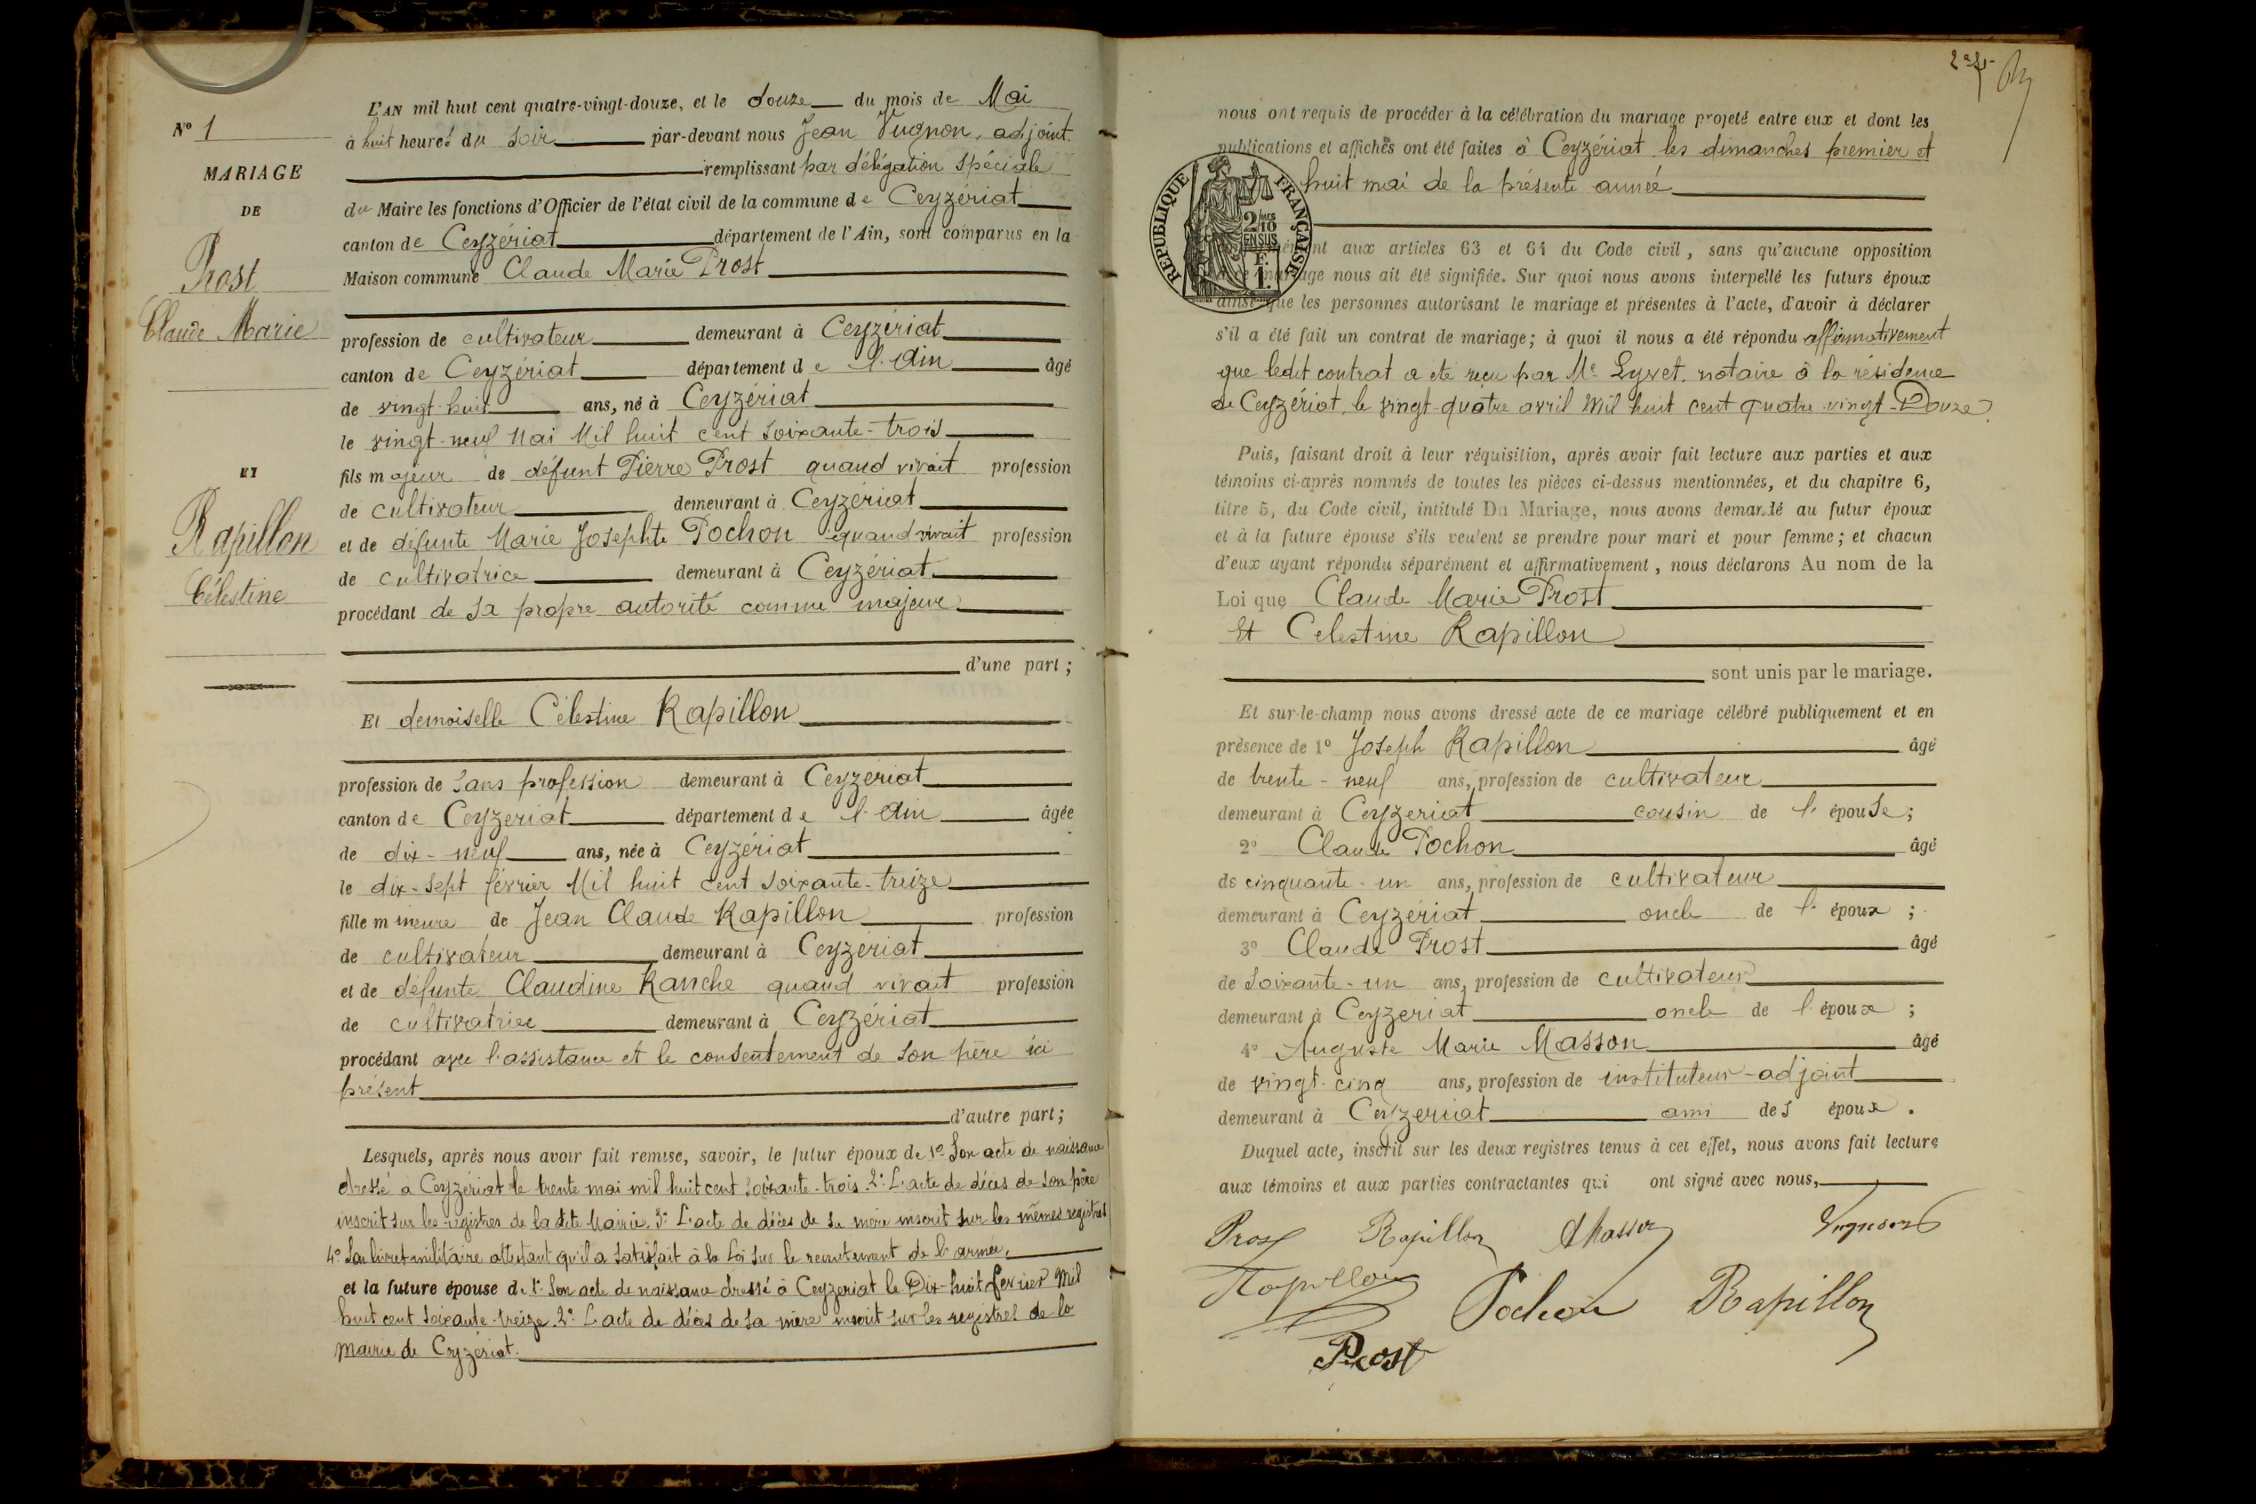 L'AN mil huit cent quatre-vingt-douze, et le douze du mois de Mai
N° 1
à huit heures du soir par-devant nous Jean Vugnon, adjoint
MARIAGE
remplissant par délégation spéciale
DE
du Maire les fonctions d'Officier de l'état civil de la commune de Ceyzériat
canton de Ceyzériat département de l'Ain, sont comparus en la
Prost
Maison commune Claude Marie Prost
Claude Marie
profession de cultivateur demeurant à Ceyzériat
canton de Ceyzériat département de l'Ain âgé
de vingt-huit ans, né à Ceyzériat
le vingt-neuf Mai Mil huit cent soixante-trois
ET
fils majeur de défunt Pierre Prost quand vivait profession
de cultivateur demeurant à Ceyzériat
Rapillon
et de défunte Marie Josephte Pochon quand vivait profession
de cultivatrice demeurant à Ceyzériat
Célestine
procédant de sa propre autorité comme majeur
d'une part ;
Et demoiselle Célestine Rapillon
profession de sans profession demeurant à Ceyzériat
canton de Ceyzeriat département de l'Ain âgée
de dix-neuf ans, née à Ceyzériat
le dix-sept février Mil huit cent soixante-treize
fille mineure de Jean Claude Rapillon profession
de cultivateur demeurant à Ceyzériat
et de défunte Claudine Ranche quand vivait profession
de cultivatrice demeurant à Ceyzériat
procédant avec l'assistance et le consentement de son père ici
présent
d'autre part ;
Lesquels, après nous avoir fait remise, savoir, le futur époux de 1° Son acte de naissance
dressé à Ceyzériat le trente mai mil huit cent soixante-trois. 2° L'acte de décès de son père
inscrit sur les registres de la dite Mairie. 3° L'acte de décès de sa mère inscrit sur les mêmes registres
4° Son livret militaire attestant qu'il a satisfait à la Loi sur le recrutement de l'armée,
et la future épouse de 1° Son acte de naissance dressé à Ceyzeriat le Dix-huit fevrier Mil
huit cent soixante-treize. 2° L'acte de décès de sa mère inscrit sur les registres de la
Mairie de Ceyzériat.
nous ont requis de procéder à la célébration du mariage projeté entre eux et dont les
publications et affiches ont été faites à Ceyzériat les dimanches premier et
huit mai de la présente année
REPUBLIQUE FRANÇAISE
2/10
EN SUS
F.
1.
aux articles 63 et 64 du Code civil, sans qu'aucune opposition
mariage nous ait été signifiée. Sur quoi nous avons interpellé les futurs époux
ainsi que les personnes autorisant le mariage et présentes à l'acte, d'avoir à déclarer
s'il a été fait un contrat de mariage ; à quoi il nous a été répondu affirmativement
que ledit contrat a été reçu par Me Lyvet, notaire à la résidence
de Ceyzériat, le vingt-quatre avril Mil huit cent quatre-vingt-Douze
Puis, faisant droit à leur réquisition, après avoir fait lecture aux parties et aux
témoins ci-après nommés de toutes les pièces ci-dessus mentionnées, et du chapitre 6,
titre 5, du Code civil, intitulé Du Mariage, nous avons demandé au futur époux
et à la future épouse s'ils veulent se prendre pour mari et pour femme ; et chacun
d'eux ayant répondu séparément et affirmativement, nous déclarons Au nom de la
Loi que Claude Marie Prost
Et Celestine Rapillon
sont unis par le mariage.
Et sur-le-champ nous avons dressé acte de ce mariage célébré publiquement et en
présence de 1° Joseph Rapillon âgé
de trente-neuf ans, profession de cultivateur
demeurant à Ceyzeriat cousin de l'épouse ;
2° Claude Pochon âgé
de cinquante-un ans, profession de cultivateur
demeurant à Ceyzériat oncle de l'époux ;
3° Claude Prost âgé
de soixante-un ans, profession de cultivateur
demeurant à Ceyzeriat oncle de l'époux ;
4° Auguste Marie Masson âgé
de vingt-cinq ans, profession de instituteur-adjoint
demeurant à Ceyzeriat ami des époux.
Duquel acte, inscrit sur les deux registres tenus à cet effet, nous avons fait lecture
aux témoins et aux parties contractantes qui ont signé avec nous,
Prost Rapillon AMasson Vugnon
Rapillon Pochon Rapillon
Prost